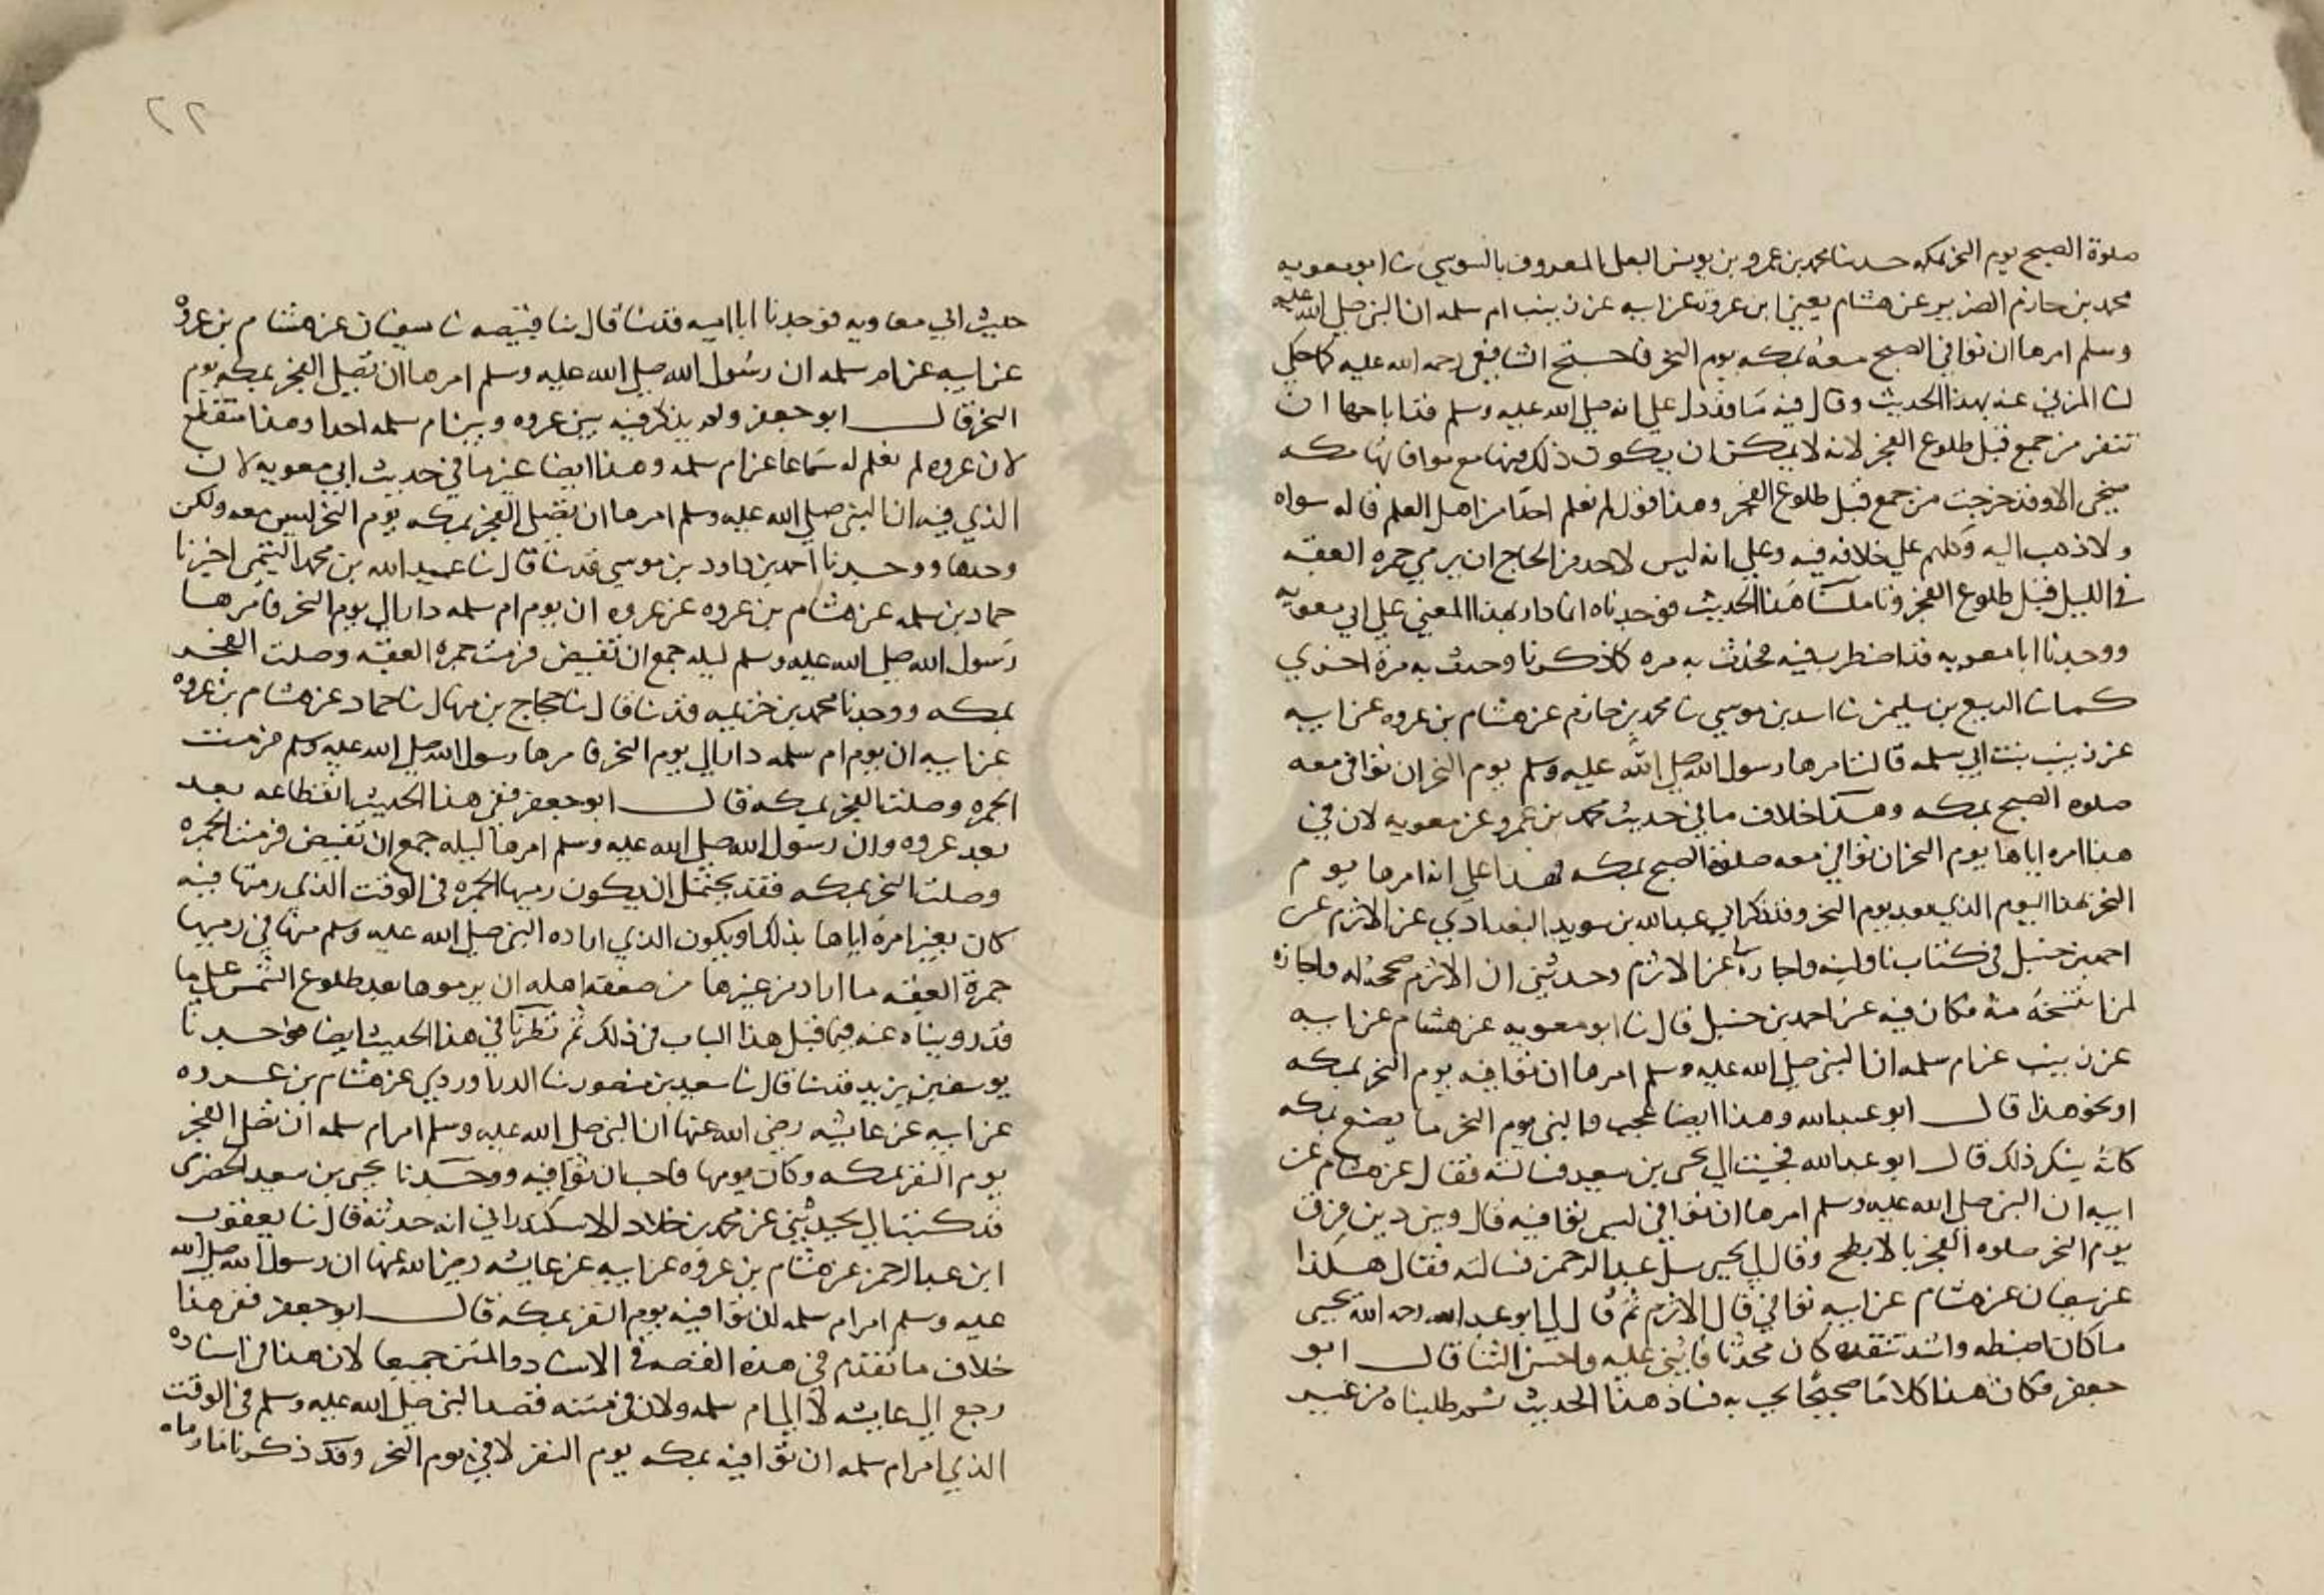 صلوة الصبح يوم النحر بمكه حدثنا محمد بن عمرو بن يونس المعروف بالسوسي ثنا ابو معويه
محمد بن حازم الضرير عن هشام يعني ابن عروة عن ابيه عن زينب ام سلمه ان النبي صلي الله عليه
وسلم امرها ان توافي الصبح معه بمكه يوم النحر فاحتج الشافعي رحمه الله عليه كما حكي
لنا المزني عنه بهذا الحديث وقال فيه ما قد دل علي انه صلي الله عليه وسلم قد اباحها ان
تنفر من جمع قبل طلوع الفجر لانه لا يمكن ان يكون ذلك منها مع موافاتها مكه
صبحي الا وقد خرجت من جمع قبل طلوع الفجر وهذا قول لم نعلم احدا من اهل العلم قاله سواه
ولا ذهب اليه وكلهم علي خلافه فيه وعلي انه ليس لاحد من الحاج ان يرمي جمره العقبه
في الليل قبل طلوع الفجر وتاملنا هذا الحديث فوجدناه انما دار بهذا المعني علي ابي معويه
ووجدنا ابا معويه قد اضطرب فيه فحدث به مره كما ذكرنا وحدث به مرة اخري
كما ثنا الربيع بن سليمن ثنا اسد بن موسي ثنا محمد بن خازم عن هشام بن عروه عن ابيه
عن زينب بنت ابي سلمه قالت امرها رسول الله صلي الله عليه وسلم يوم النحر ان توافي معه
صلوه الصبح بمكه وهذا خلاف ما في حديث محمد بن عمرو عن معويه لان في
هذا امره اياها يوم النحر ان توافي معه صلوة الصبح بمكه فهذا علي انه امرها يوم
النحر لهذا اليوم الذي بعد يوم النحر وقد ذكر لي عبد الله بن سويد البغدادي عن الاثرم عن
احمد بن حنبل في كتاب ناولنيه واجازه لي عن الاثرم وحدثني ان الاثرم صححه له واجازه
لمن انتسخه منه فكان فيه عن احمد بن حنبل قال نا ابو معويه عن هشام عن ابيه
عن زينب عن ام سلمه ان النبي صلي الله عليه وسلم امرها ان توافيه يوم النحر بمكه
او نحو هذا قال ابو عبد الله وهذا ايضا عجب وما لنبي يوم النحر ما يصنع بمكه
كانه ينكر ذلك قال ابو عبد الله فجئت الي يحي بن سعيد فسالته فقال عن هشام عن
ابيه ان النبي صلي الله عليه وسلم امرها ان توافي ليس توافيه قال وبين ذين فرق
يوم النحر صلوه الفجر بالابطح وقال لي يحيي سل عبد الرحمن فسالته فقال هكذا
عن سفيان عن هشام عن ابيه توافي قال الاثرم ثم قال لي ابو عبد الله رحمه الله يحيي
ما كان اضبطه واشد تفقده كان محدثا فاثني عليه واحسن الثنا قال ابو
جعفر فكان هذا كلاما صحيحا يجب به فساد هذا الحديث ثم طلبناه من غير
٢٢
حديث ابي معاويه فوجدنا ابا اميه قد ثنا قال ثنا قبيصه نا سفيان عن هشام بن عروه
عن ابيه عن ام سلمه ان رسول الله صلي الله عليه وسلم امرها ان تصلي الفجر بمكه يوم
النحر قال ابو جعفر ولم يذكر فيه بين عروه وبين ام سلمه احدا وهذا متقطع
لان عروه لم نعلم له سماعا عن ام سلمه وهذا ايضا غير ما في حديث ابي معويه لان
الذي فيه ان النبي صلي الله عليه وسلم امرها ان تصلي الفجر بمكه يوم النحر ليس معه ولكن
وحدها ووجدنا احمد بن داود بن موسي قد نا قال نا عبيد الله بن محمد التيمي اخبرنا
حماد بن سلمه عن هشام بن عروه عن عروه ان يوم ام سلمه دار الي يوم النحر فامرها
رسول الله صلي الله عليه وسلم ليله جمع ان تفيض فرمت جمرة العقبه وصلت الفجر
بمكه ووجدنا محمد بن خزيمه قد نا قال نا حجاج بن منهال نا حماد عن هشام بن عروه
عن ابيه ان يوم ام سلمه دار الي يوم النحر فامرها رسول الله صلي الله عليه وسلم فرمت
الجمره وصلت الفجر بمكه قال ابو جعفر ففي هذا الحديث انقطاعه بعد
بعد عروه وان رسول الله صلي الله عليه وسلم امرها ليله جمع ان تفيض فرمت الجمره
وصلت النحر بمكه فقد يحتمل ان يكون رميها الجمره في الوقت الذي رمتها فيه
كان بغير امره اياها بذلك ويكون الذي اراده النبي صلي الله عليه وسلم منها في رميها
جمرة العقبه ما اراد من غيرها من ضعفه اهله ان يرموها بعد طلوع الشمس علي ما
قد رويناه عنه فيما قبل هذا الباب من ذلك ثم نظرنا في هذا الحديث ايضا فوجدنا
يوسف بن يزيد قد نا قال نا سعيد بن منصور نا الدراوردي عن هشام بن عروه
عن ابيه عن عايشه رضي الله عنها ان النبي صلي الله عليه وسلم امر ام سلمه ان تصلي الفجر
يوم النفر بمكه وكان يومها فاحب ان توافيه ووجدنا يحي بن سعيد الحضري
قد كتب الي يحدثني عن محمد بن خلاد الاسكندراني انه حدثه قال نا يعقوب
ابن عبد الرحمن عن هشام بن عروه عن ابيه عن عايشه رضي الله عنها ان رسول الله صلي الله
عليه وسلم امر ام سلمه ان توافيه يوم النفر بمكه قال ابو جعفر ففي هذا
خلاف ما تقدم في هذه القصه في الاسناد والمتن جميعا لان هذا في اسناده
رجع الي عايشه لا الي ام سلمه ولان في متنه قصد النبي صلي الله عليه وسلم في الوقت
الذي امر ام سلمه ان توافيه بمكه يوم النفر لا في يوم النحر وقد ذكرنا ما رواه